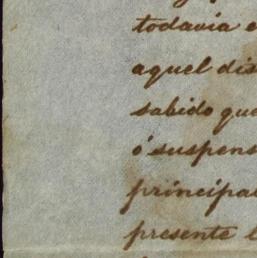 todavia e
aquel dis
sabido que
ó suspens
principal
presente l